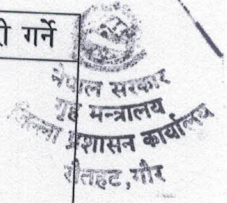 री गर्ने
नेपाल सरकार
गृह मन्त्रालय
जिल्ला प्रशासन कार्यालय
रौतहट, गौर